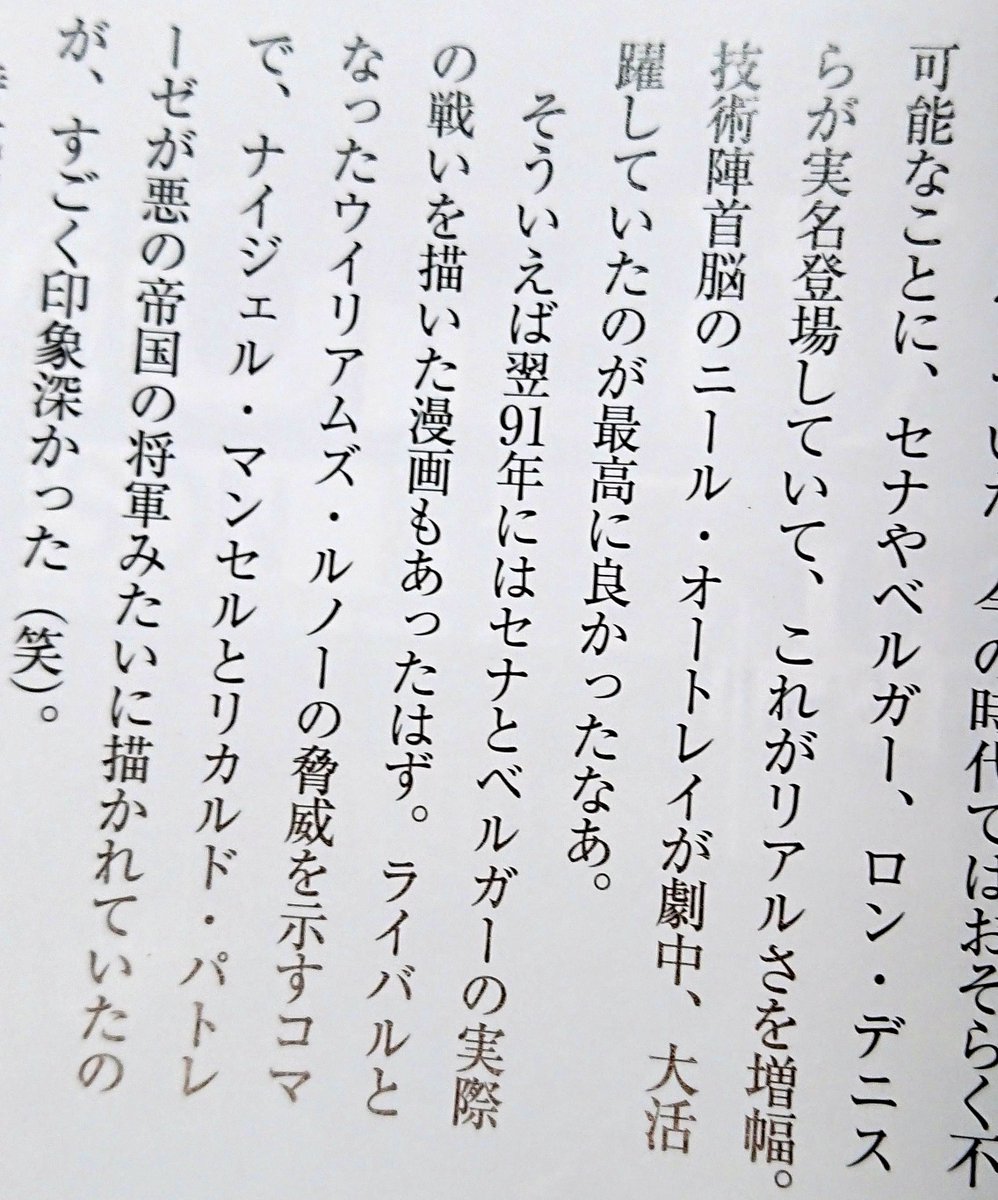 今の時代ではおそらく不
可能なことに、セナやベルガー、ロン・デニス
らが実名登場していて、これがリアルさを増幅。
技術陣首脳のニール・オートレイが劇中、大活
躍していたのが最高に良かったなあ。
そういえば翌91年にはセナとベルガーの実際
の戦いを描いた漫画もあったはず。ライバルと
なったウイリアムズ・ルノーの脅威を示すコマ
で、ナイジェル・マンセルとリカルド・パトレ
ーゼが悪の帝国の将軍みたいに描かれていたの
が、すごく印象深かった（笑）。